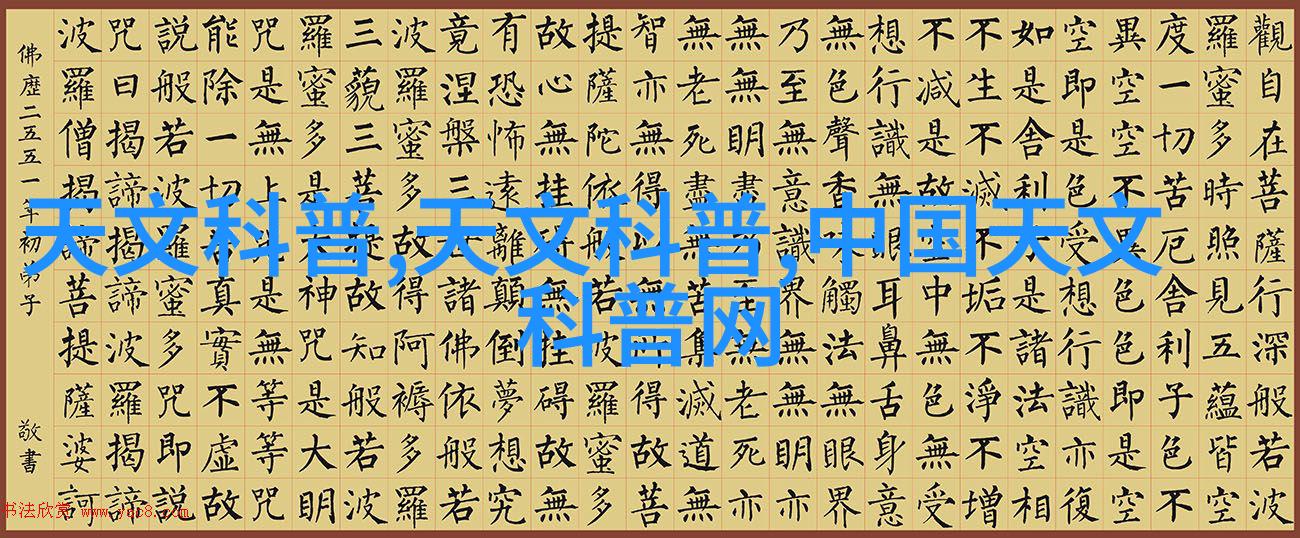 觀自在菩薩行深般若波
羅蜜多時照見五蘊皆空
度一切苦厄舍利子色不
異空空不異色色即是空
空即是色受想行識亦復
如是舍利子是諸法空相
不生不滅不垢不淨不增
不減是故空中無色無受
想行識無眼耳鼻舌身意
無色聲香味觸法無眼界
乃至無意識界無無明亦
無無明盡乃至無老死亦
無老死盡無苦集滅道無
智亦無得以無所得故菩
提薩陀依般若波羅蜜多
故心無挂碍無挂碍故無
有恐怖遠離顛倒夢想究
竟涅槃三世諸佛依般若
波羅蜜多故得阿褥多羅
三藐三菩提故知般若波
羅蜜多是大神咒是大明
咒是無上咒是無等等咒
能除一切苦真實不虛故
説般若波羅蜜多咒即説
咒曰揭諦揭諦波羅揭諦
波羅僧揭諦菩提薩婆訶
佛歷二五五一年初弟子
敬書
天文科普,天文科普,中国天文
科普网
书法欣赏 www.yac8.com